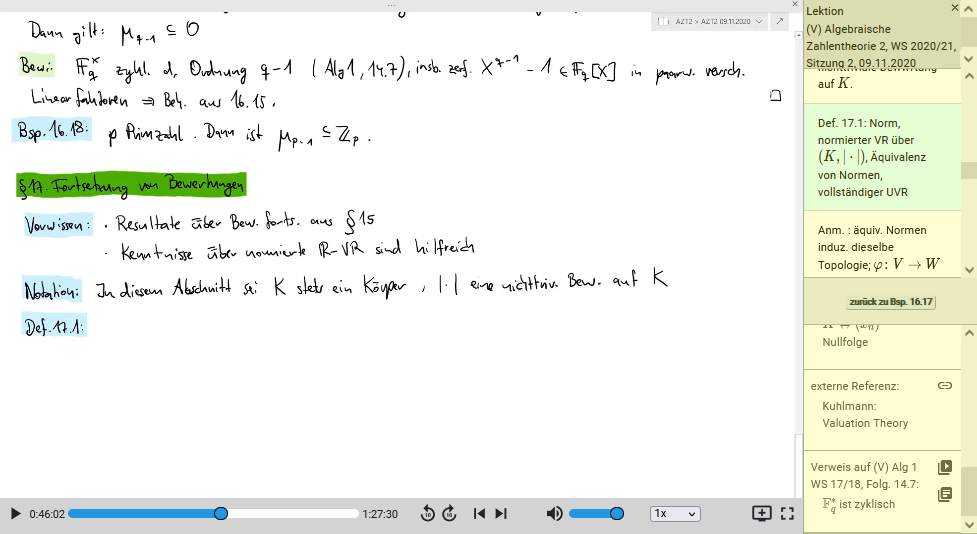 Dann gilt: μ_{q-1} ⊆ O
Bew.: F_q^× zykl. d. Ordnung q-1 (Alg1, 14.7), insb. zerf. X^{q-1} - 1 ∈ F_q[X] in paarw. versch.
Linearfaktoren ⇒ Beh. aus 16.15. □
Bsp. 16.18: p Primzahl. Dann ist μ_{p-1} ⊆ Z_p.
§17. Fortsetzung von Bewertungen
Vorwissen: · Resultate über Bew.forts. aus §15
· Kenntnisse über normierte R-VR sind hilfreich
Notation: In diesem Abschnitt sei K stets ein Körper, |·| eine nichttriv. Bew. auf K
Def. 17.1:
AZT2 > AZT2 09.11.2020
0:46:02
1:27:30
10
10
1x
Lektion
(V) Algebraische
Zahlentheorie 2, WS 2020/21,
Sitzung 2, 09.11.2020
auf K.
Def. 17.1: Norm,
normierter VR über
(K, | · |), Äquivalenz
von Normen,
vollständiger UVR
Anm. : äquiv. Normen
induz. dieselbe
Topologie; φ: V → W
zurück zu Bsp. 16.17
Nullfolge
externe Referenz:
Kuhlmann:
Valuation Theory
Verweis auf (V) Alg 1
WS 17/18, Folg. 14.7:
F_q^* ist zyklisch